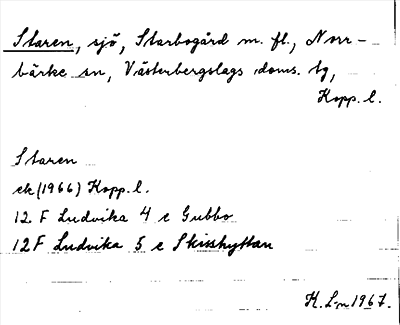 Staren, sjö, Starbogård m. fl., Norr-
bärke sn, Västerbergslags doms. tg,
Kopp. l.
Staren
ek (1966) Kopp. l.
12 F Ludvika 4 c Gubbo
12 F Ludvika 5 c Skisshyttan
H. L-n 1967.